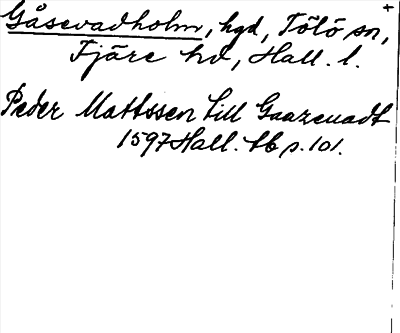 Gåsevadholm, hgd, Tölö sn,
Fjäre hd, Hall. l.
Peder Mattssen till Gaazeuadt
1597 Hall. tb p. 101.